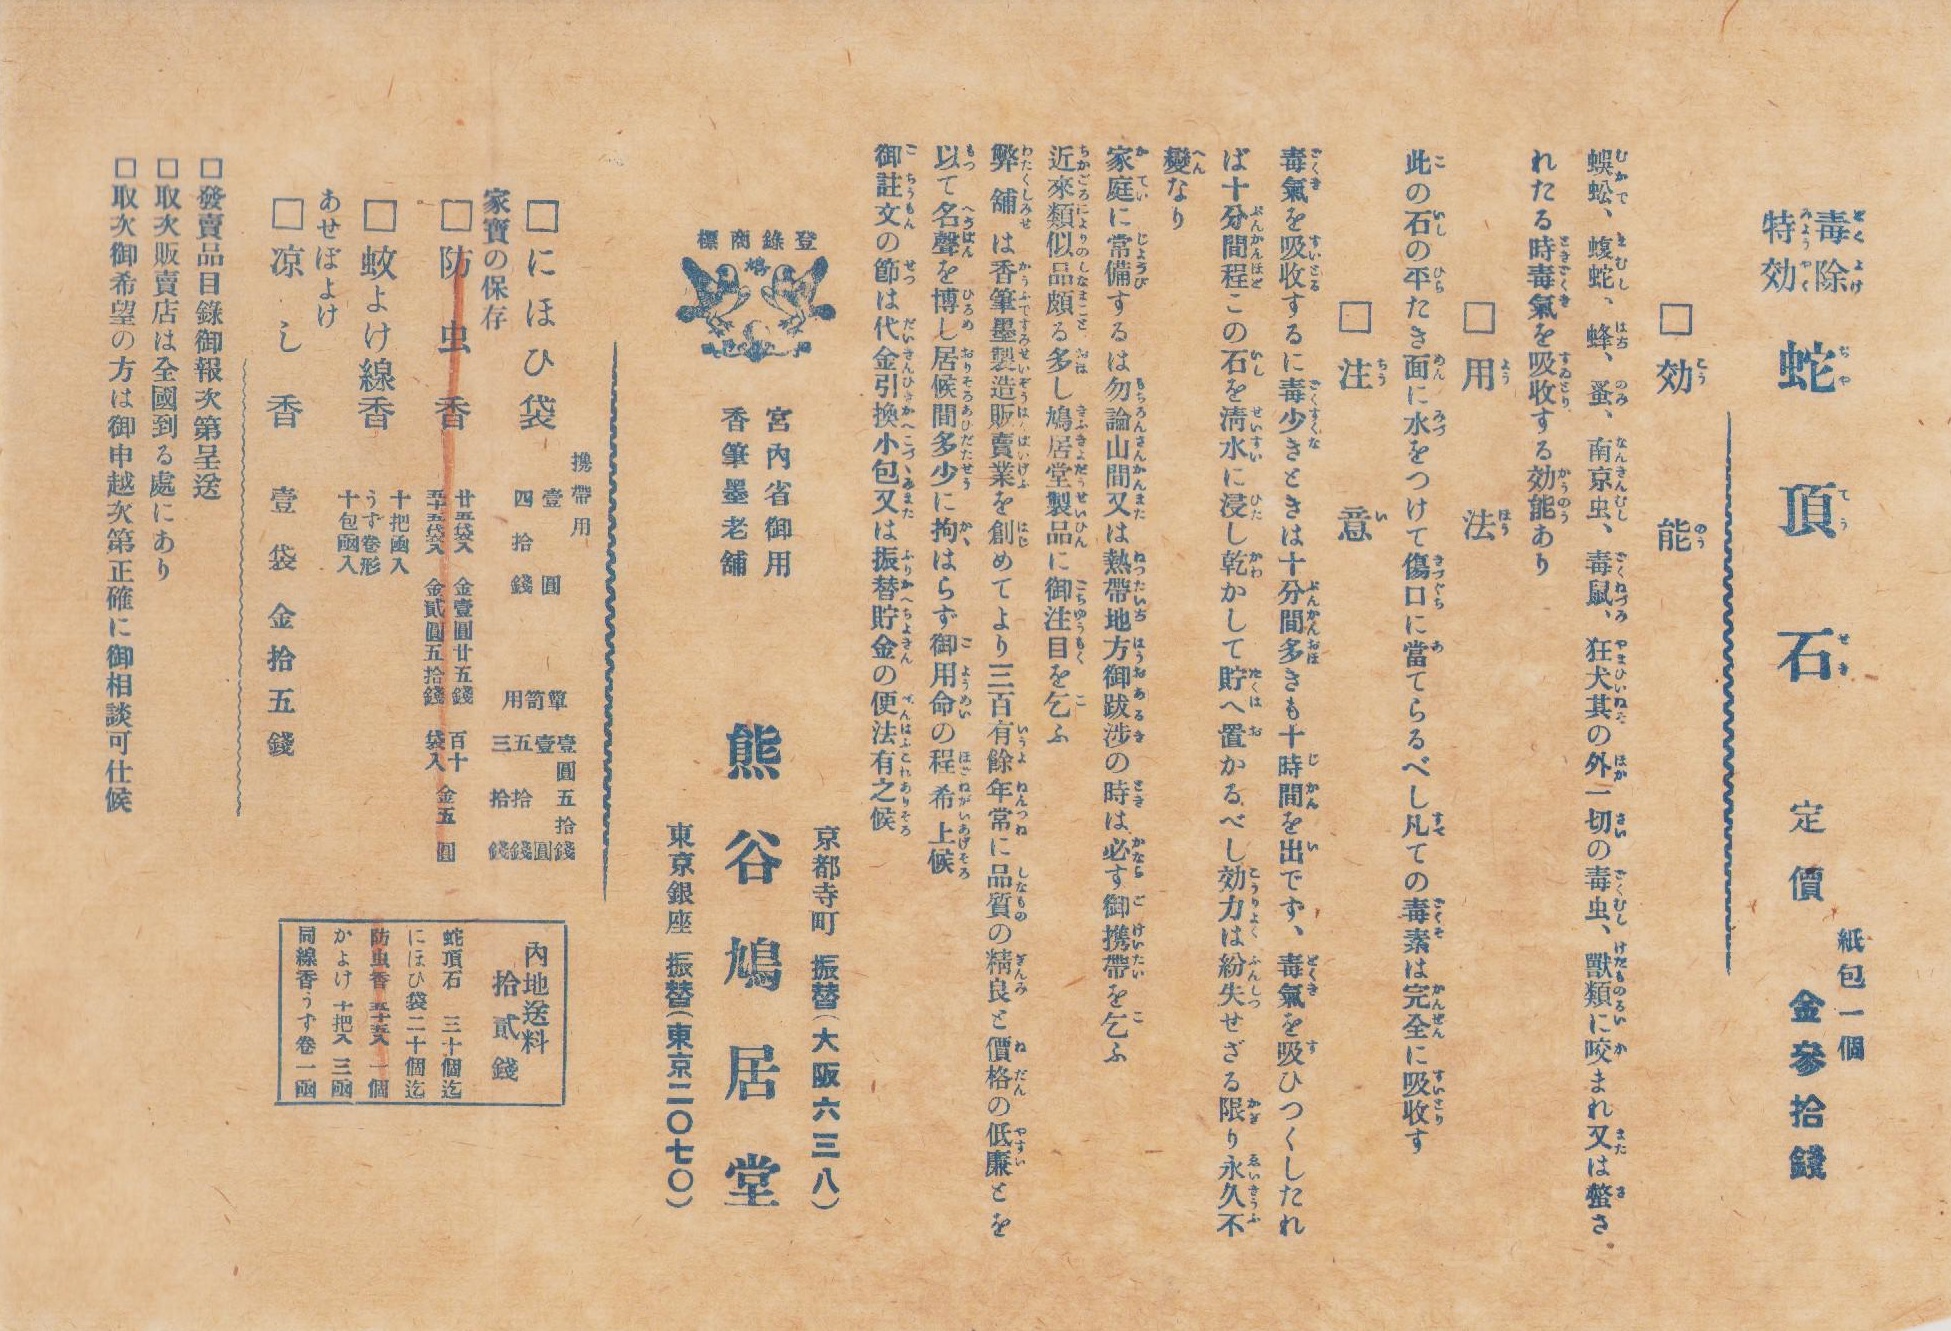 毒除
特効
蛇頂石
定價
紙包一個
金參拾錢
□効能
蜈蚣、蝮蛇、蜂、蚤、南京虫、毒鼠、狂犬其の外一切の毒虫、獸類に咬まれ又は螫さ
れたる時毒氣を吸收する効能あり
□用法
此の石の平たき面に水をつけて傷口に當てらるべし凡ての毒素は完全に吸收す
□注意
毒氣を吸收するに毒少きときは十分間多きも十時間を出でず、毒氣を吸ひつくしたれ
ば十分間程この石を淸水に浸し乾かして貯へ置かるべし効力は紛失せざる限り永久不
變なり
家庭に常備するは勿論山間又は熱帶地方御跋涉の時は必す御携帶を乞ふ
近來類似品頗る多し鳩居堂製品に御注目を乞ふ
弊舖は香筆墨製造販賣業を創めてより三百有餘年常に品質の精良と價格の低廉とを
以て名聲を博し居候間多少に拘はらず御用命の程希上候
御註文の節は代金引換小包又は振替貯金の便法有之候
登錄商標
鳩
宮内省御用
香筆墨老舖
京都寺町 振替(大阪六三八)
熊谷鳩居堂
東京銀座 振替(東京二〇七〇)
□にほひ袋
携帶用
壹圓
四拾錢
簞笥用
壹圓五拾錢
壹圓
五拾錢
三拾錢
家寶の保存
□防虫香
廿五袋入 金壹圓廿五錢
五十五袋入 金貳圓五拾錢
百十袋入 金五圓
□蚊よけ線香
十把凾入
うず卷形
十包凾入
あせぼよけ
□凉し香 壹袋 金拾五錢
内地送料
拾貳錢
蛇頂石 三十個迄
にほひ袋二十個迄
防虫香 五十五入 一個
かよけ 十把入 三凾
同線香うず卷一凾
□發賣品目錄御報次第呈送
□取次販賣店は全國到る處にあり
□取次御希望の方は御申越次第正確に御相談可仕候